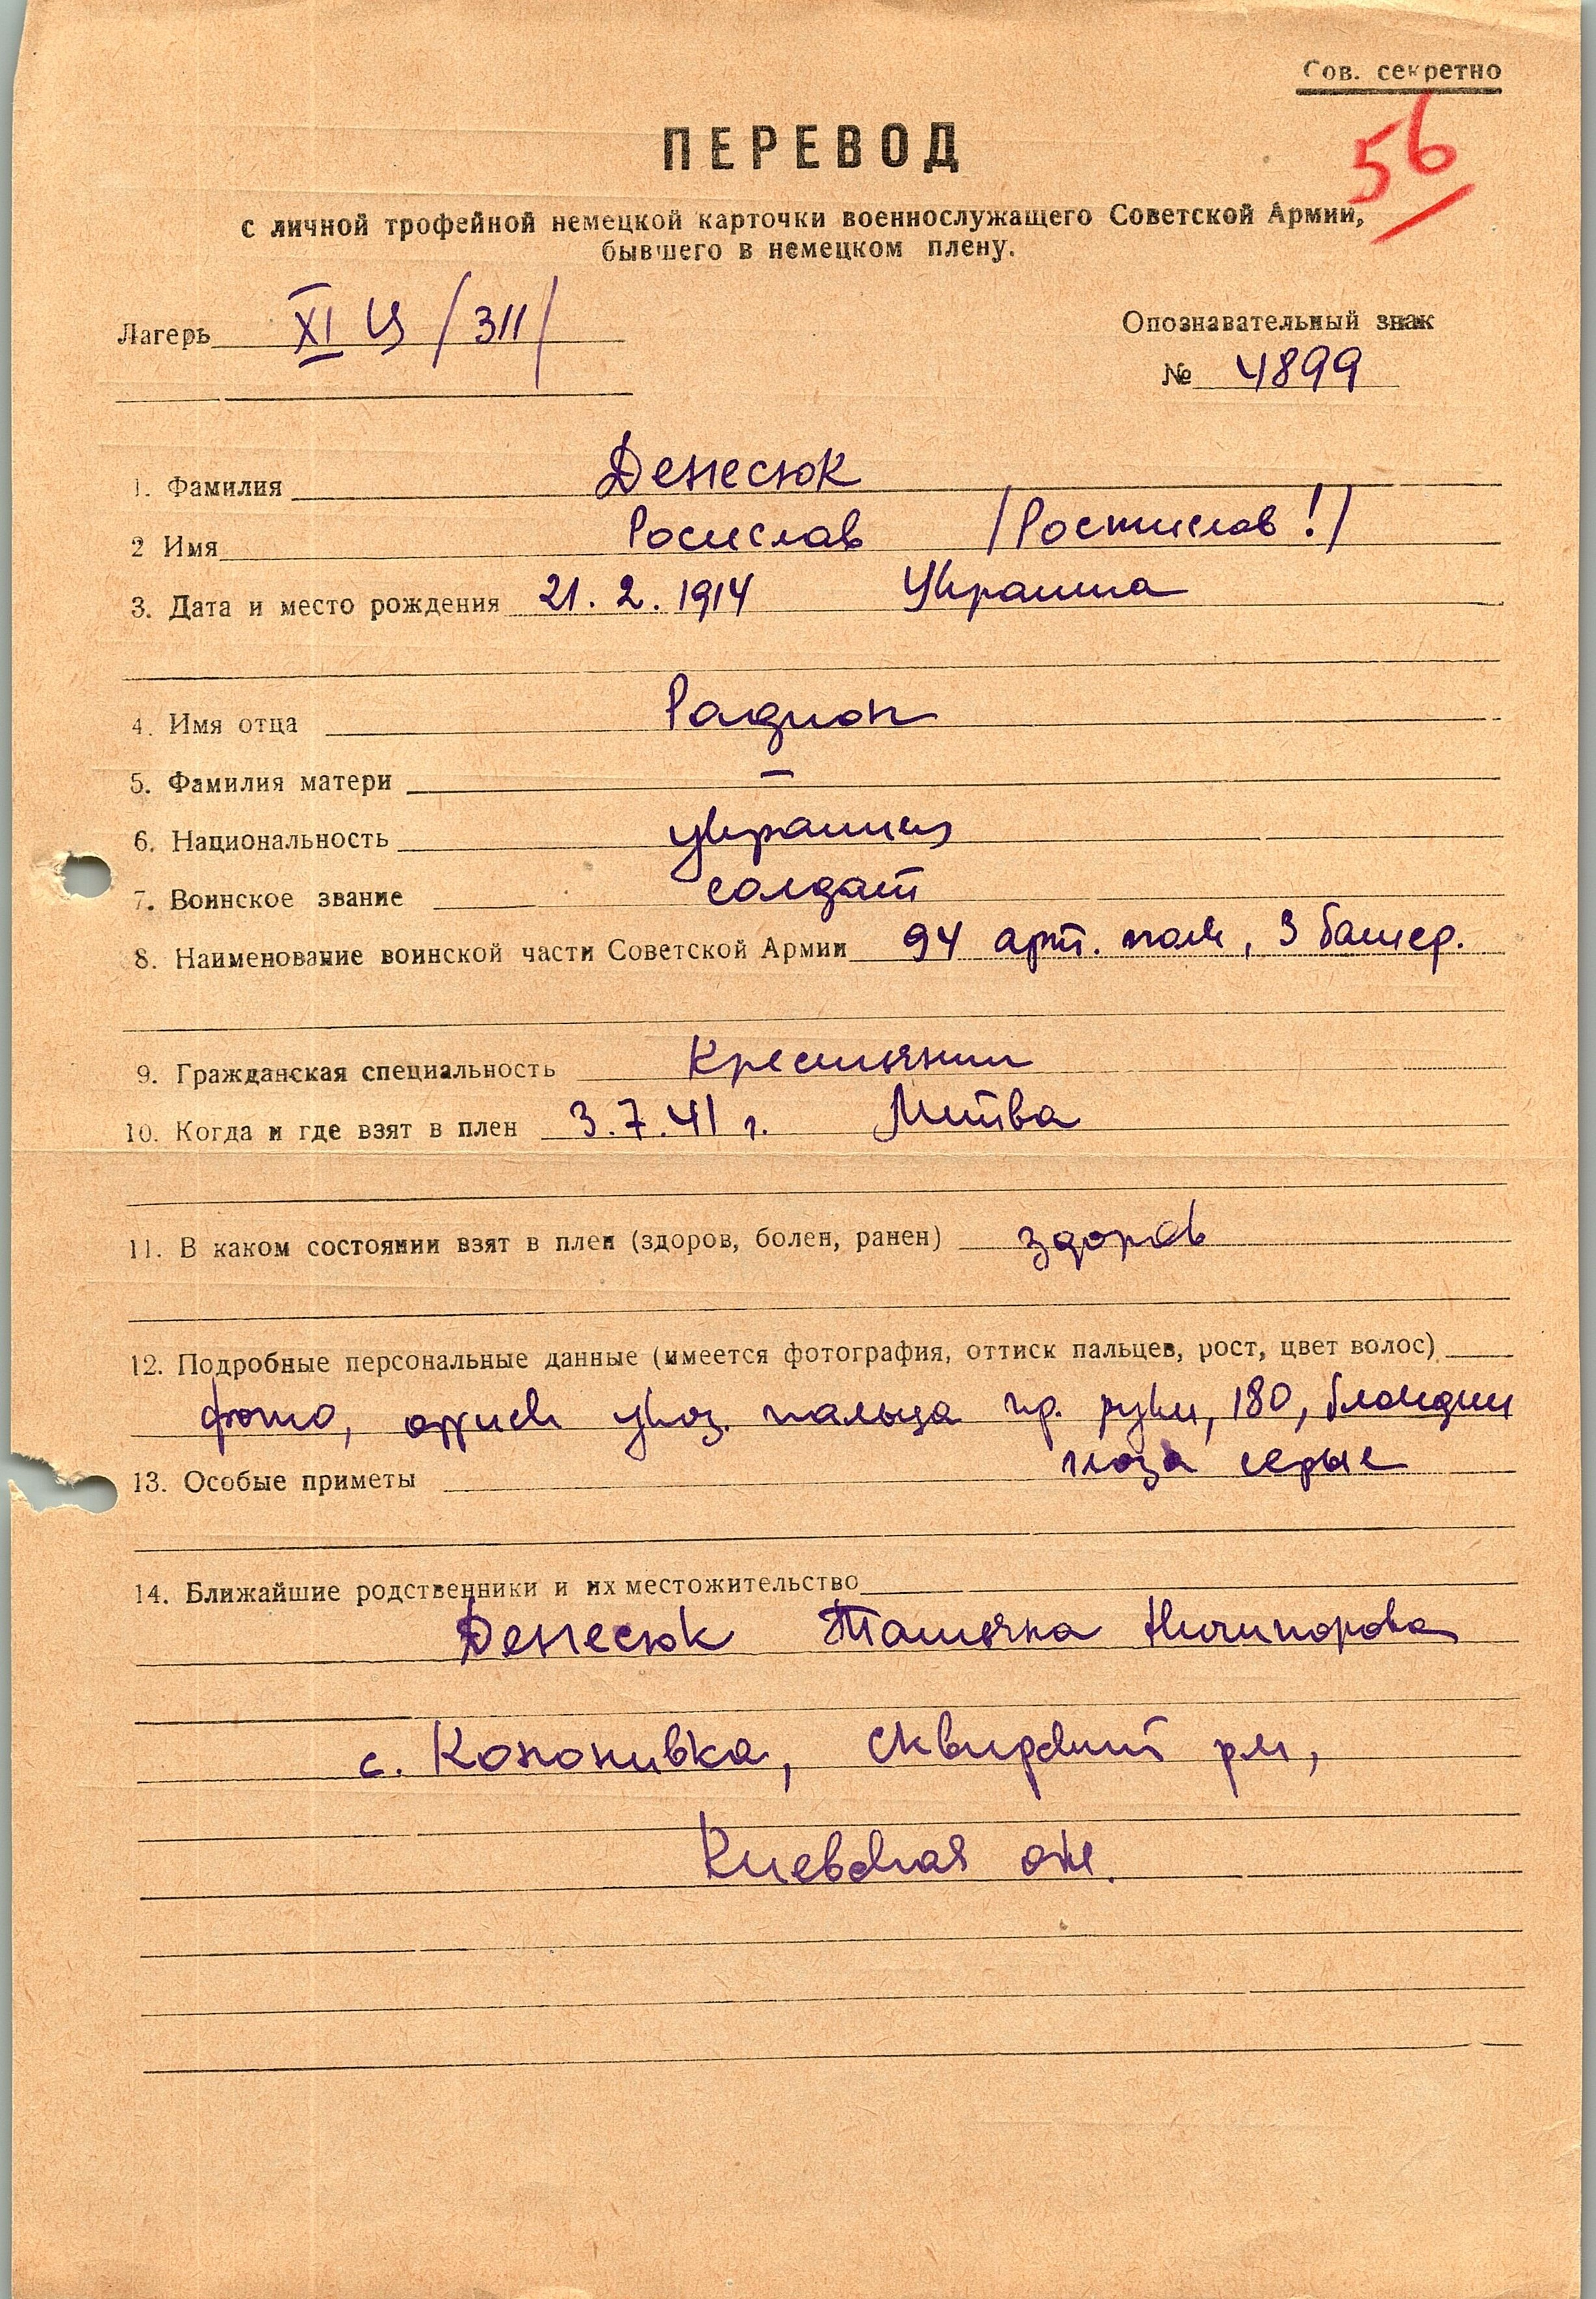 Сов. секретно
56
ПЕРЕВОД
с личной трофейной немецкой карточки военнослужащего Советской Армии,
бывшего в немецком плену.
Лагерь XI Ц /311/
Опознавательный знак
№ 4899
1. Фамилия Денесюк
2 Имя Росислав /Ростислав!/
3. Дата и место рождения 21.2.1914 Украина
4. Имя отца Радион
5. Фамилия матери —
6. Национальность украинец
7. Воинское звание солдат
8. Наименование воинской части Советской Армии 94 арт. полк, 3 батер.
9. Гражданская специальность Крестьянин
10. Когда и где взят в плен 3.7.41 г. Литва
11. В каком состоянии взят в плен (здоров, болен, ранен) здоров
12. Подробные персональные данные (имеется фотография, оттиск пальцев, рост, цвет волос)
фото, оттиск указ. пальца пр. руки, 180, блондин
глаза серые
13. Особые приметы
14. Ближайшие родственники и их местожительство
Денесюк Татьяна Ничипорова
с. Кононивка, Сквирский рн,
Киевская обл.